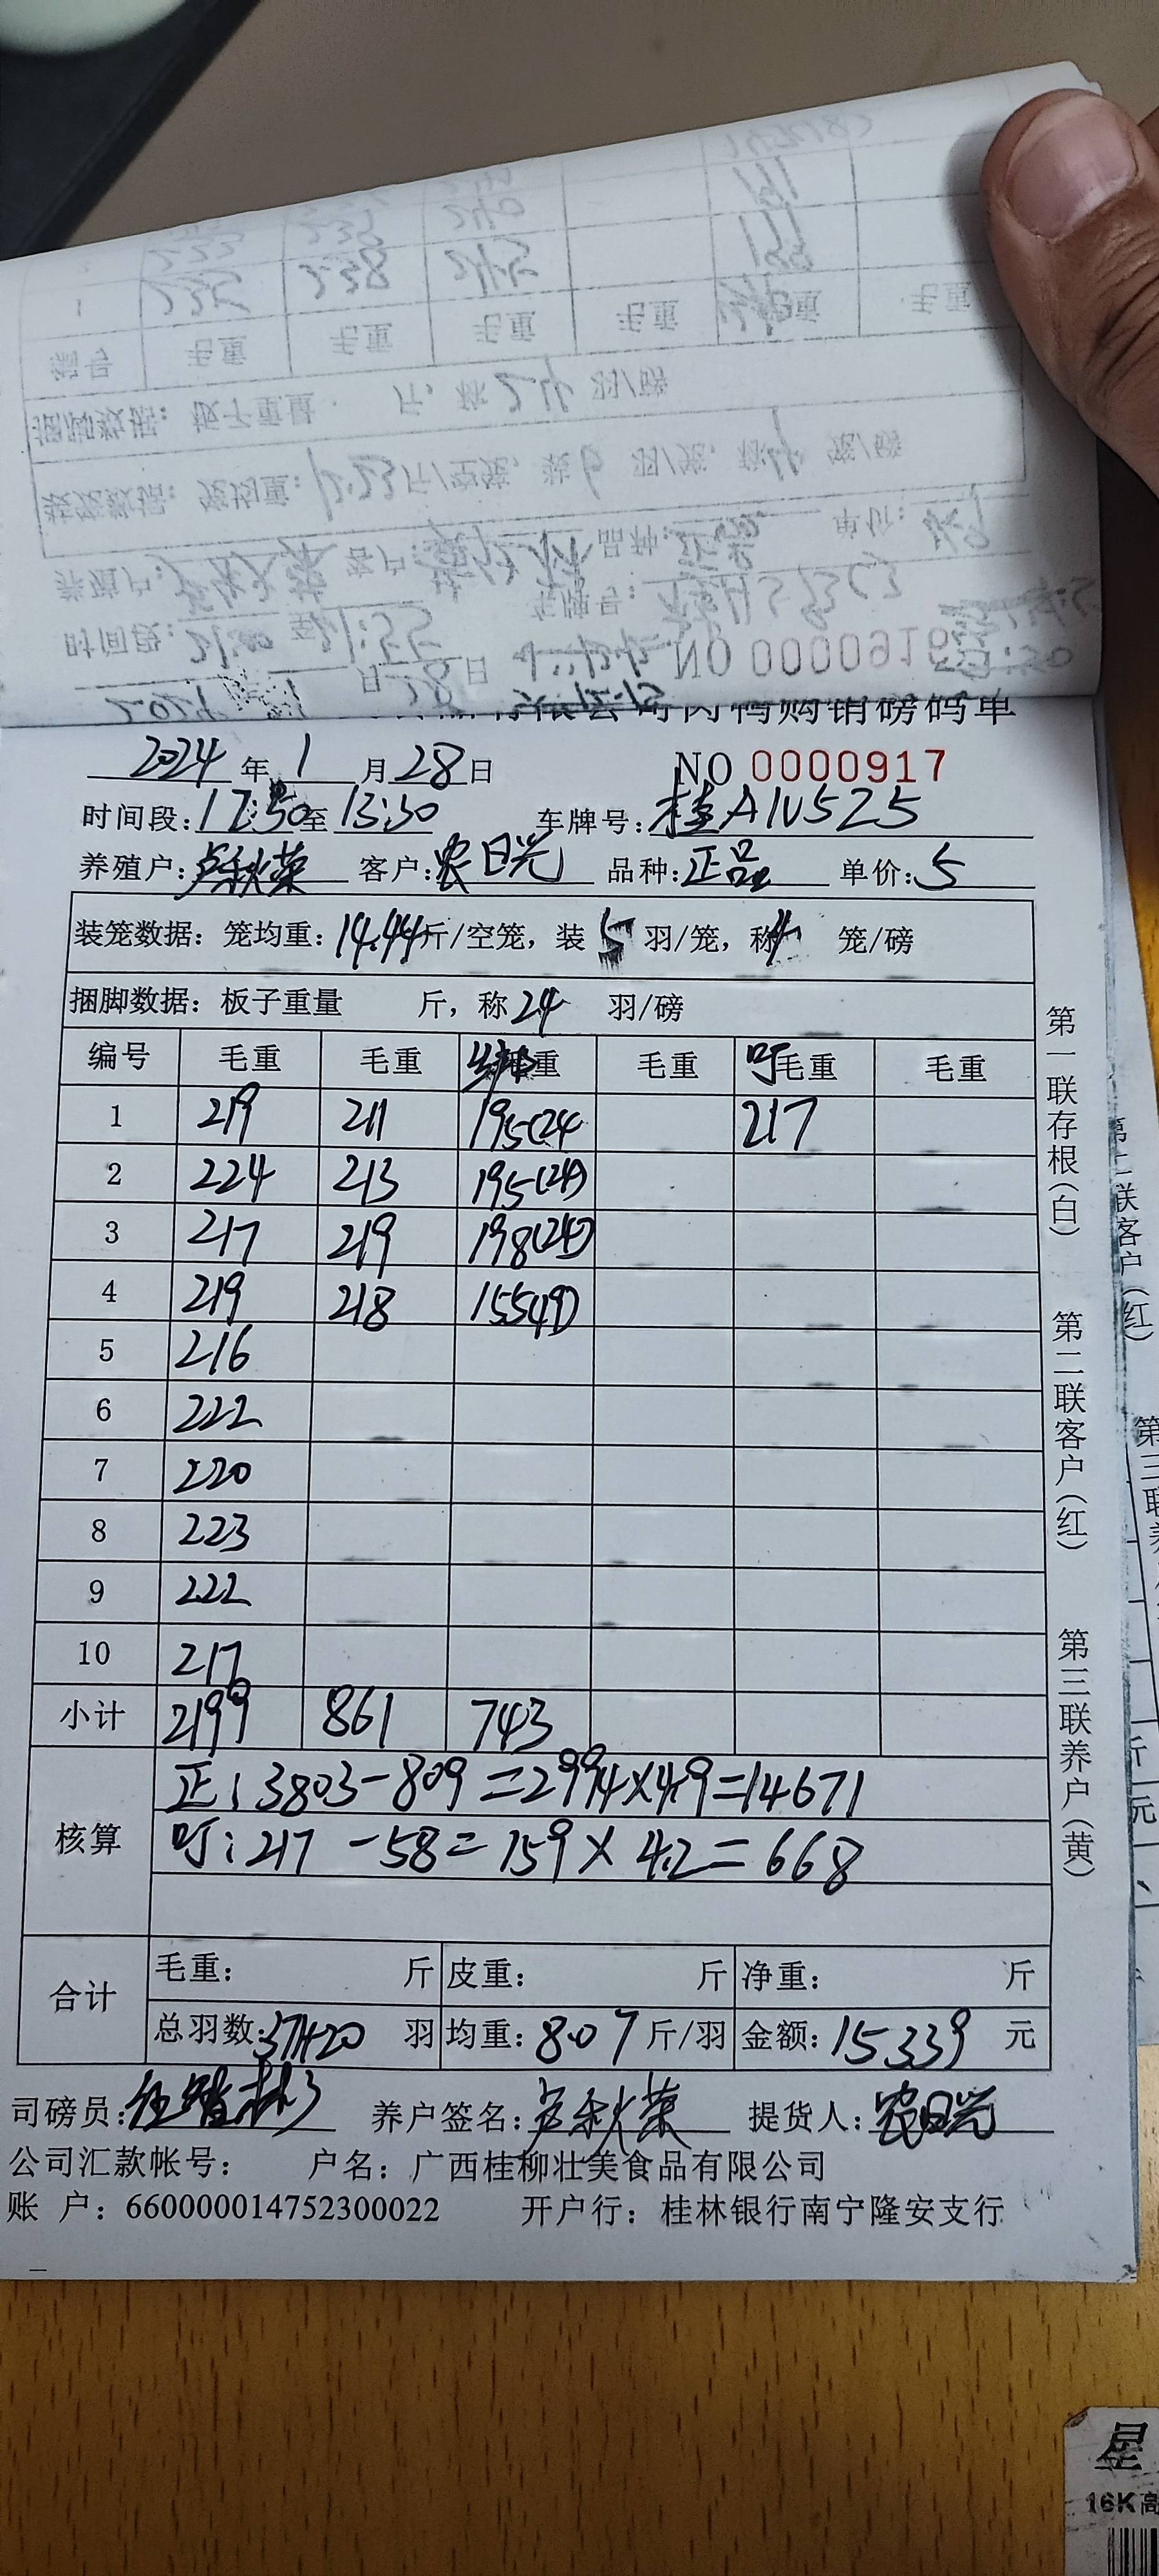 NO 0000916
肉鸭购销磅码单
2024年1月28日 NO 0000917
时间段:12:50至13:30 车牌号:桂A1U525
养殖户:卢秋荣 客户:农日光 品种:正品 单价:5
装笼数据:笼均重:14.44斤/空笼,装5羽/笼,称4笼/磅
捆脚数据:板子重量 斤,称24羽/磅
编号 毛重 毛重 毛重 毛重 叮毛重 毛重
1 219 211 195(24 217
2 224 213 195(24)
3 217 219 198(24)
4 219 218 155(19)
5 216
6 222
7 220
8 223
9 222
10 217
小计 2199 861 743
核算 正:3803-809=2994×4.9=14671
叮:217-58=159×4.2=668
合计 毛重: 斤 皮重: 斤 净重: 斤
总羽数:371+20 羽 均重:8.07斤/羽 金额:15339元
司磅员: 养户签名:卢秋荣 提货人:农日光
公司汇款帐号: 户名:广西桂柳壮美食品有限公司
账 户:660000014752300022 开户行:桂林银行南宁隆安支行
第一联存根(白) 第二联客户(红) 第三联养户(黄)
星
16K